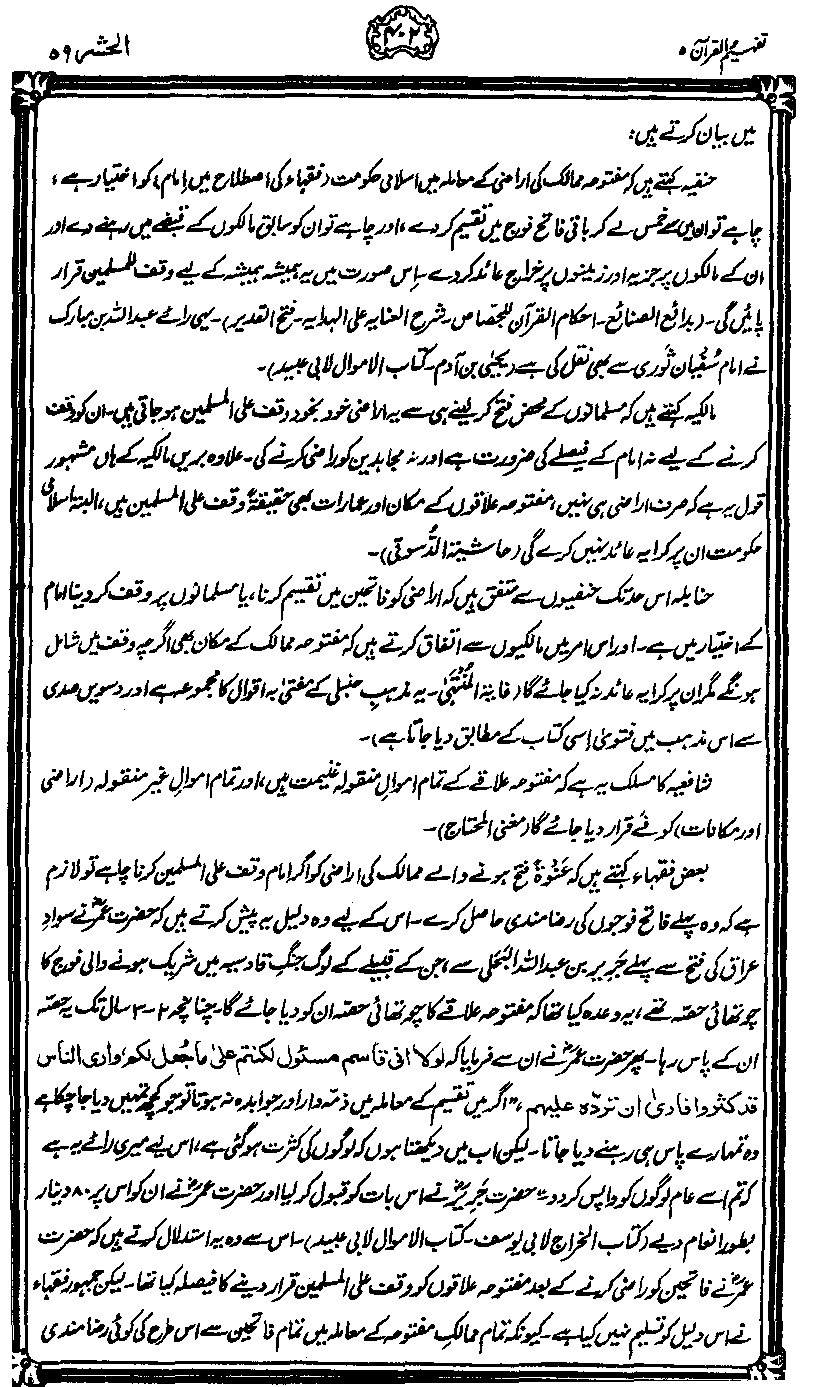 تفہیم القرآن ۵
۴۰۲
الحشر ۵۹
میں بیان کرتے ہیں:
حنفیہ کہتے ہیں کہ مفتوحہ ممالک کی اراضی کے معاملہ میں اسلامی حکومت (فقہاء کی اصطلاح میں امام) کو اختیار ہے،
چاہے تو ان میں سے خمس لے کر باقی فاتح فوج میں تقسیم کر دے، اور چاہے تو ان کو سابق مالکوں کے قبضے میں رہنے دے اور
ان کے مالکوں پر جزیہ اور زمینوں پر خراج عائد کر دے۔ اِس صورت میں یہ ہمیشہ ہمیشہ کے لیے وقف للمسلمین قرار
پائیں گی۔ (بدائع الصنائع۔ احکام القرآن للجصاص۔ شرح العنایہ علی الہدایہ۔ فتح القدیر)۔ یہی رائے عبداللہ بن مبارک
نے امام سُفیان ثَوری سے بھی نقل کی ہے (یحییٰ بن آدم۔ کتاب الاموال لابی عبید)۔
مالکیہ کہتے ہیں کہ مسلمانوں کے محض فتح کر لینے ہی سے یہ اراضی خود بخود وقف علی المسلمین ہو جاتی ہیں۔ ان کو وقف
کرنے کے لیے نہ امام کے فیصلے کی ضرورت ہے اور نہ مجاہدین کو راضی کرنے کی۔ علاوہ بریں مالکیہ کے ہاں مشہور
قول یہ ہے کہ صرف اراضی ہی نہیں، مفتوحہ علاقوں کے مکان اور عمارات بھی حقیقۃً وقف علی المسلمین ہیں، البتہ اسلامی
حکومت ان پر کرایہ عائد نہیں کرے گی (حاشیۃ الدُّسوقی)۔
حنابلہ اس حد تک حنفیوں سے متفق ہیں کہ اراضی کو فاتحین میں تقسیم کرنا، یا مسلمانوں پر وقف کر دینا امام
کے اختیار میں ہے۔ اور اس امر میں مالکیوں سے اتفاق کرتے ہیں کہ مفتوحہ ممالک کے مکان بھی اگرچہ وقف میں شامل
ہونگے مگر ان پر کرایہ عائد نہ کیا جائے گا (غایۃ المُنْتَہیٰ۔ یہ مذہبِ حنبلی کے مفتیٰ بہ اقوال کا مجموعہ ہے اور دسویں صدی
سے اس مذہب میں فتویٰ اِسی کتاب کے مطابق دیا جاتا ہے)۔
شافعیہ کا مسلک یہ ہے کہ مفتوحہ علاقے کے تمام اموالِ منقولہ غنیمت ہیں، اور تمام اموالِ غیر منقولہ (اراضی
اور مکانات) کو فَے قرار دیا جائے گا (مغنی المحتاج)۔
بعض فقہاء کہتے ہیں کہ عَنْوَۃً فتح ہونے والے ممالک کی اراضی کو اگر امام وقف علی المسلمین کرنا چاہے تو لازم
ہے کہ وہ پہلے فاتح فوجوں کی رضامندی حاصل کرے۔ اس کے لیے وہ دلیل یہ پیش کرتے ہیں کہ حضرت عمرؓ نے سوادِ
عراق کی فتح سے پہلے جَرِیر بن عبداللہ البَجَلی سے، جن کے قبیلے کے لوگ جنگِ قادسیہ میں شریک ہونے والی فوج کا
چوتھائی حصّہ تھے، یہ وعدہ کیا تھا کہ مفتوحہ علاقے کا چوتھائی حصّہ ان کو دیا جائے گا۔ چنانچہ ۲-۳ سال تک یہ حصّہ
ان کے پاس رہا۔ پھر حضرت عمرؓ نے ان سے فرمایا کہ لولا انی قاسم مسئول لکنتم علیٰ ما جُعل لکم، وارٰی الناس
قد کثروا فاریٰ ان تردّہ علیہم، ”اگر میں تقسیم کے معاملہ میں ذمّہ دار اور جواب دہ نہ ہوتا تو جو کچھ تمہیں دیا جا چکا ہے
وہ تمہارے پاس ہی رہنے دیا جاتا۔ لیکن اب میں دیکھتا ہوں کہ لوگوں کی کثرت ہو گئی ہے، اس لیے میری رائے یہ ہے
کہ تم اسے عام لوگوں کو واپس کر دو“۔ حضرت جَرِیرؓ نے اس بات کو قبول کر لیا اور حضرت عمرؓ نے ان کو اس پر ۸۰ دینار
بطور انعام دیے (کتاب الخراج لابی یوسف۔ کتاب الاموال لابی عبید)۔ اس سے وہ یہ استدلال کرتے ہیں کہ حضرت
عمرؓ نے فاتحین کو راضی کرنے کے بعد مفتوحہ علاقوں کو وقف علی المسلمین قرار دینے کا فیصلہ کیا تھا۔ لیکن جمہور فقہاء
نے اس دلیل کو تسلیم نہیں کیا ہے۔ کیونکہ تمام ممالکِ مفتوحہ کے معاملہ میں تمام فاتحین سے اس طرح کی کوئی رضامندی